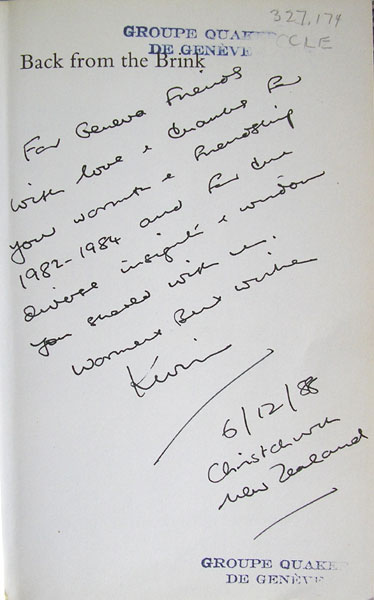 327.174
CCLE
GROUPE QUAKER
DE GENÈVE
Back from the Brink
For Geneva Friends
with love & thanks for
your warmth & friendship
1982-1984 and for the
diverse insights & wisdom
you shared with us.
Warmest Best wishes
Kevin
6/12/88
Christchurch
New Zealand
GROUPE QUAKER
DE GENÈVE